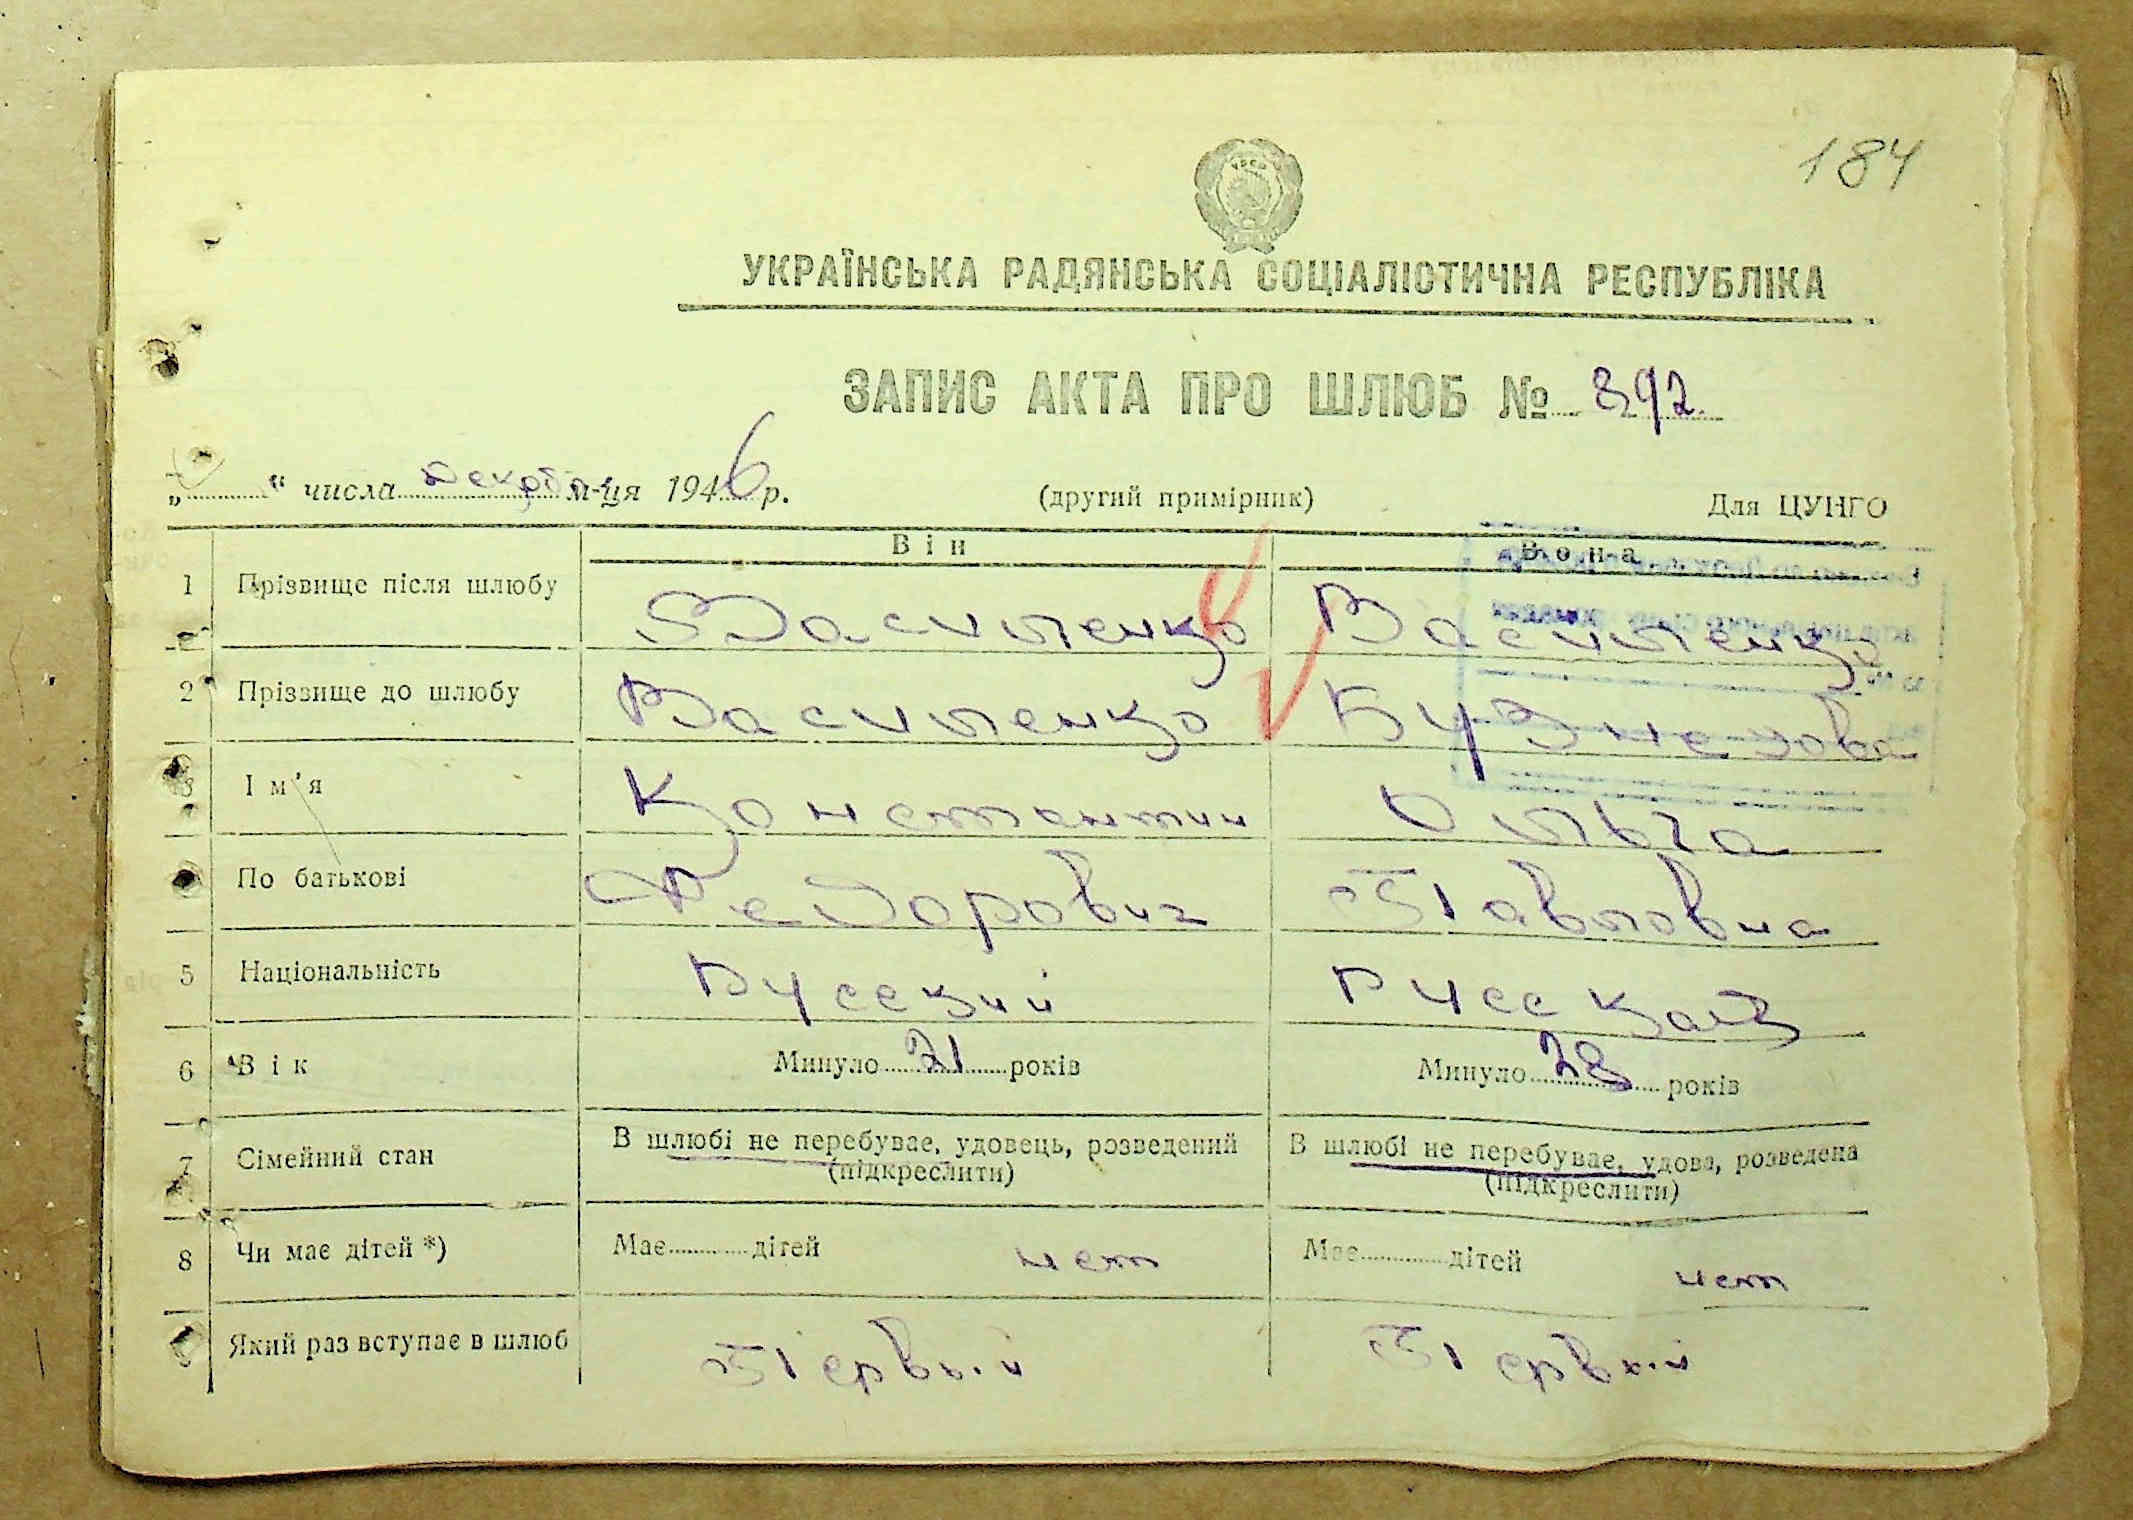 184
УКРАЇНСЬКА РАДЯНСЬКА СОЦІАЛІСТИЧНА РЕСПУБЛІКА
ЗАПИС АКТА ПРО ШЛЮБ № 392
„ “ числа декабря м-ця 1946 р. (другий примірник) Для ЦУНГО
Він Вона
1 Прізвище після шлюбу Василенко Василенко
2 Прізвище до шлюбу Василенко Кузнецова
3 Ім’я Константин Ольга
По батькові Федорович Павловна
5 Національність Русский Русская
6 Вік Минуло 21 років Минуло 28 років
7 Сімейний стан В шлюбі не перебуває, удовець, розведений В шлюбі не перебуває, удова, розведена
(підкреслити) (підкреслити)
8 Чи має дітей *) Має дітей нет Має дітей нет
Який раз вступає в шлюб Первый Первый